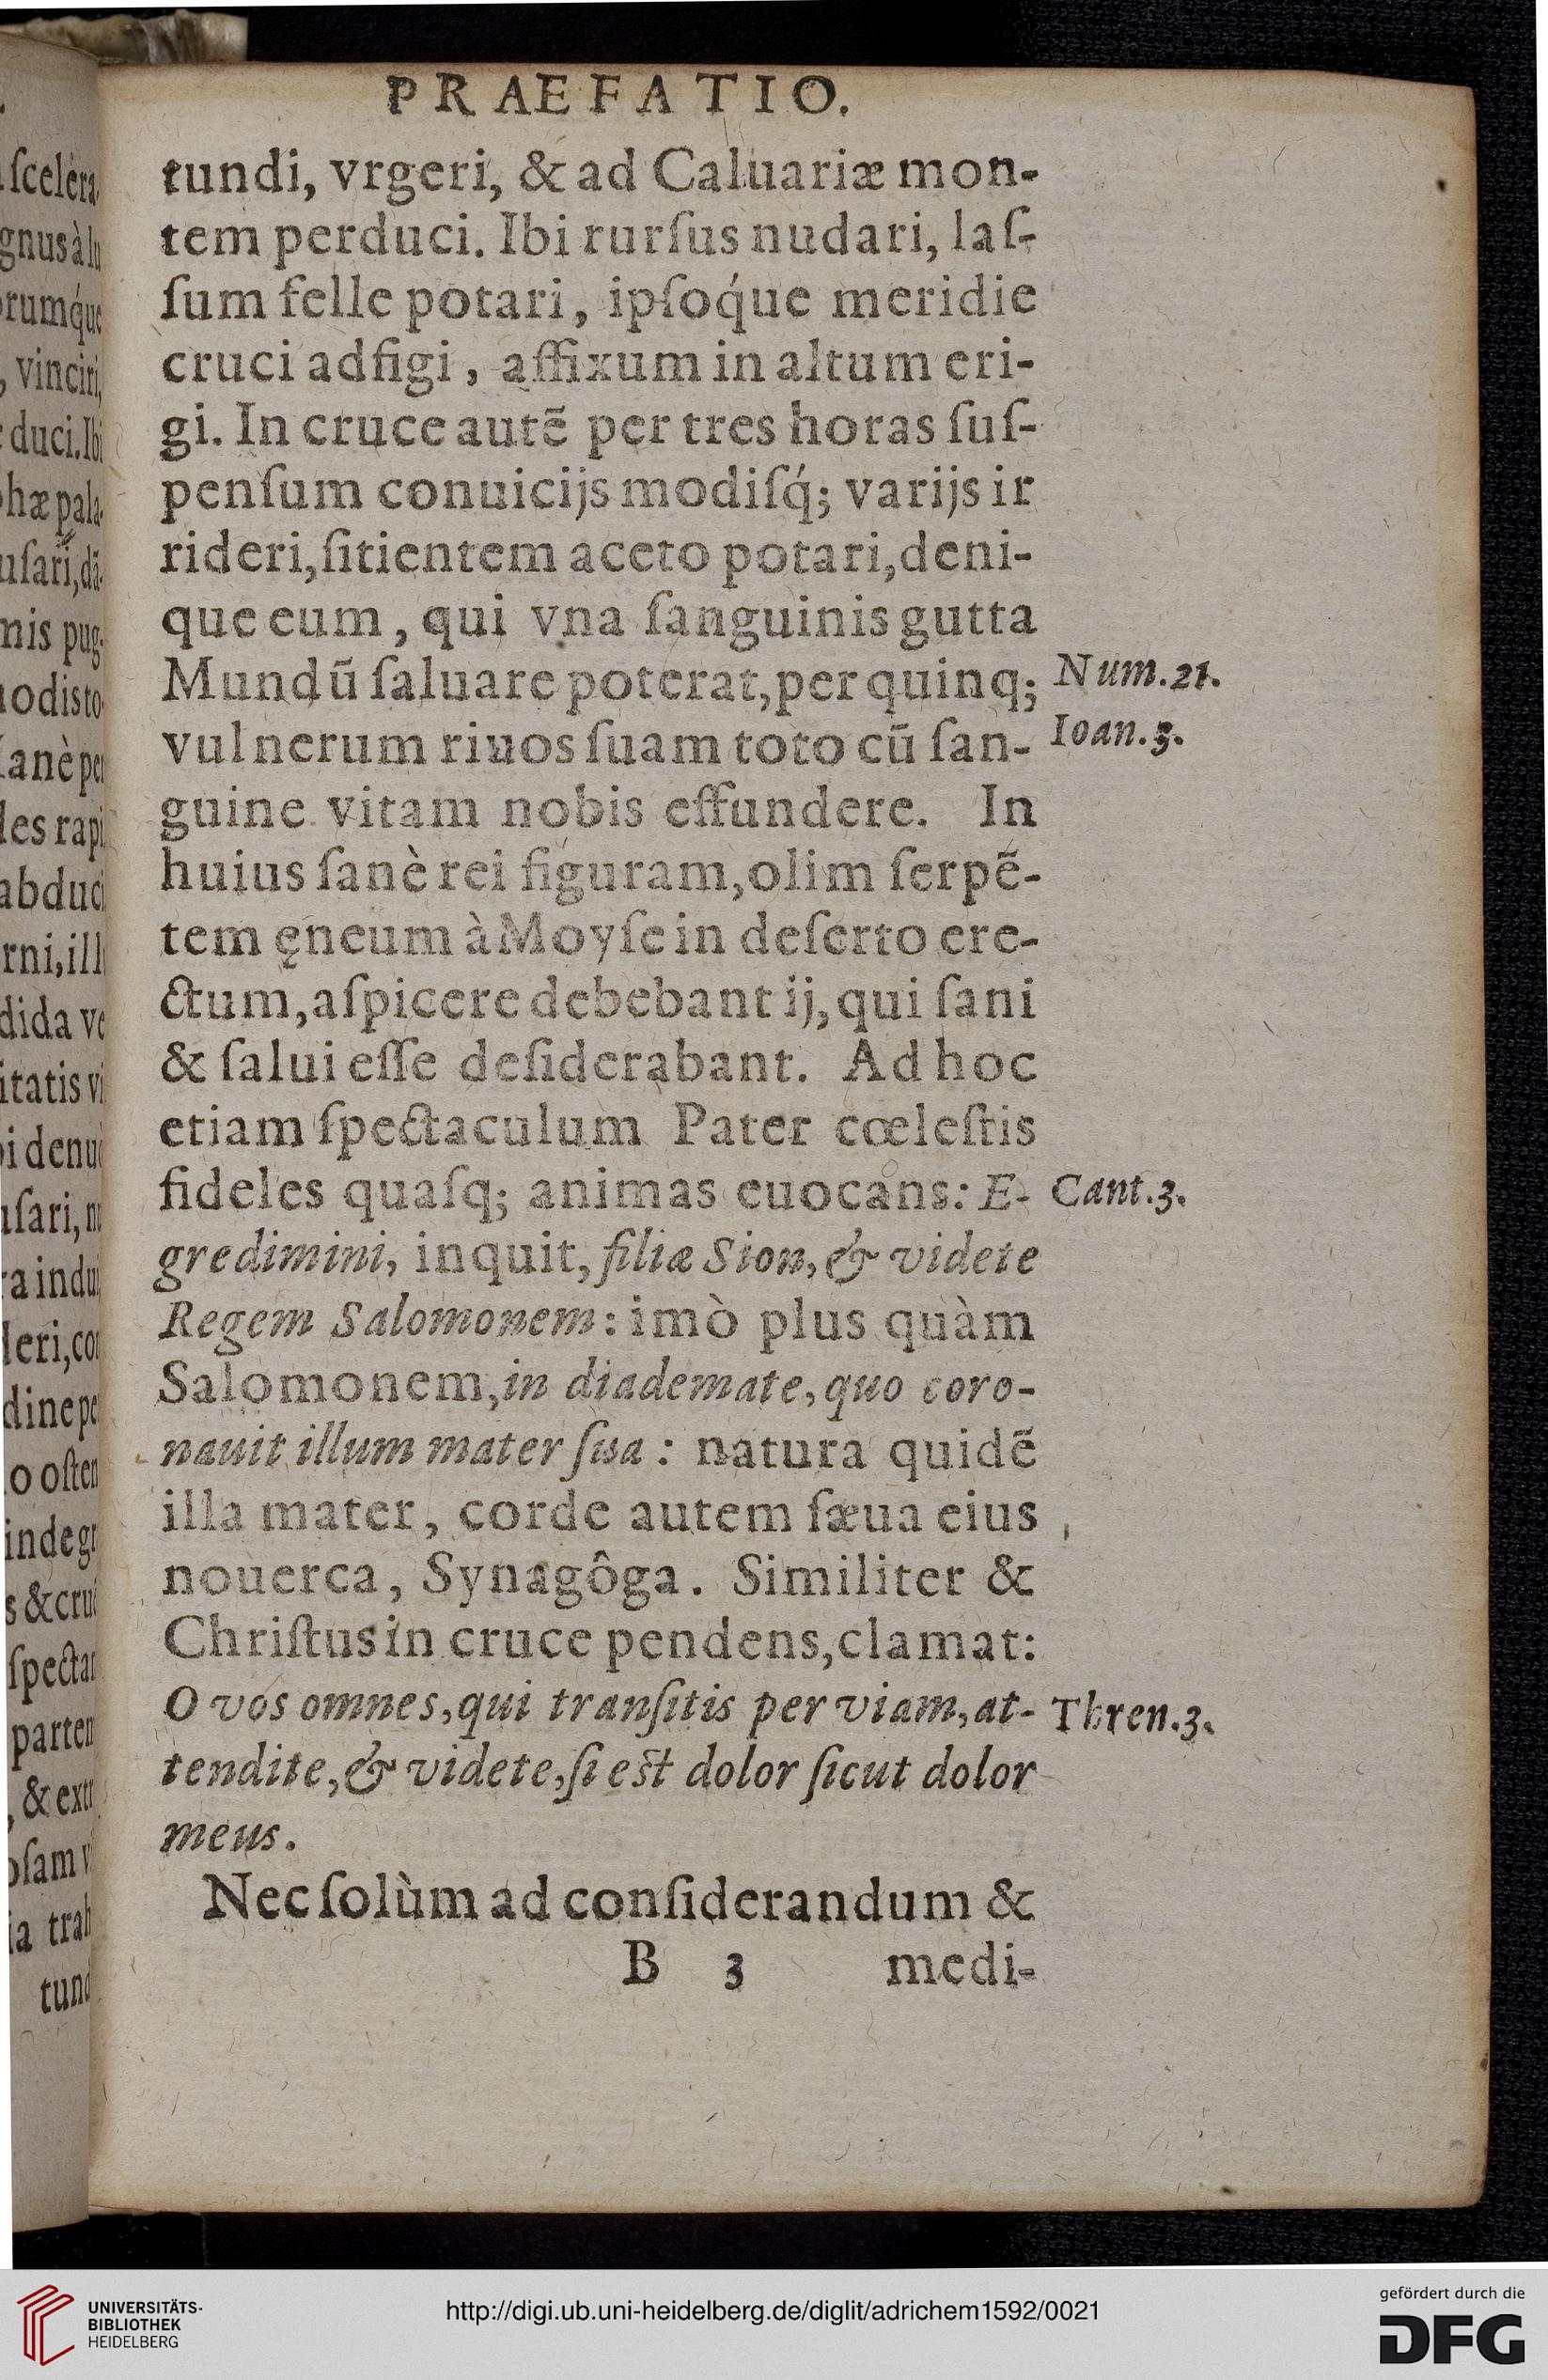 PRAEFATIO.
tundi, vrgeri, & ad Caluariæ mon-
tem perduci. Ibi rurſus nudari, laſ-
ſum felle potari, ipſoq́ue meridie
cruci adfigi, affixum in altum eri-
gi. In cruce autẽ per tres horas ſuſ-
penſum conuicijs modiſq́; varijs ir
rideri, ſitientem aceto potari, deni-
que eum, qui vna ſanguinis gutta
Mundũ ſaluare poterat, per quinq;
Num.21.
vulnerum riuos ſuam toto cũ ſan-
Ioan.3.
guine vitam nobis effundere. In
huius ſanè rei figuram, olim ſerpẽ-
tem ęneum à Moyſe in deſerto ere-
ctum, aſpicere debebant ij, qui ſani
& ſalui eſſe deſiderabant. Ad hoc
etiam ſpectaculum Pater cœleſtis
fideles quaſq; animas euocans: E-
Cant.3.
gredimini, inquit, filiæ Sion, & videte
Regem Salomonem: imò plus quàm
Salomonem, in diademate, quo coro-
nauit illum mater ſua: natura quidẽ
illa mater, corde autem ſæua eius
nouerca, Synagôga. Similiter &
Chriſtus in cruce pendens, clamat:
O vos omnes, qui tranſitis per viam, at-
Thren.3.
tendite, & videte, ſi eſt dolor ſicut dolor
meus.
Nec ſolùm ad conſiderandum &
B 3 medi-
ſcelera-
gnus à lu
orumq́ue
, vinciri,
duci. Ibi
hæ pala-
uſari, dã-
mis pug-
odis to
anè per
les rapi
abduci
rni, ill
dida ve
itatis vi
i denuò
uſari, nu
a indui
deri, co
dine pe
o oſten
inde gr
s & cru
ſpectan
partem
, & extr
oſam v
ia trah
tund
UNIVERSITÄTS-
BIBLIOTHEK
HEIDELBERG
http://digi.ub.uni-heidelberg.de/diglit/adrichem1592/0021
gefördert durch die
DFG